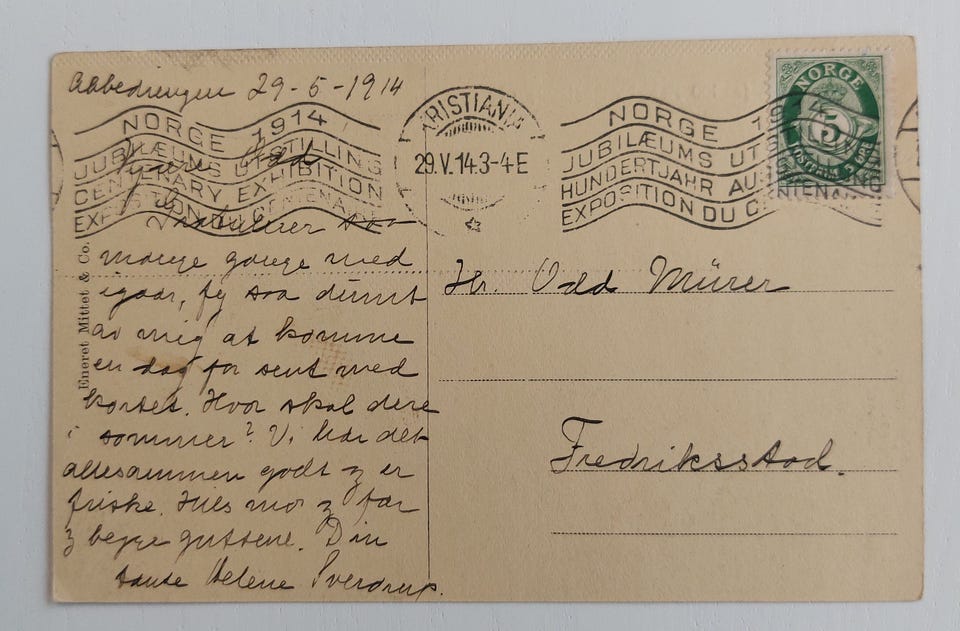 29-5-1914
NORGE 1914
JUBILÆUMS UTSTILLING
CENTENARY EXHIBITION
EXPOSITION DU CENTENAIRE
KRISTIANIA
29.V.14 3-4 E
NORGE 1914
JUBILÆUMS UT
HUNDERTJAHR AU
EXPOSITION DU CENTENA
NORGE
5
POSTFRIM
ØRE
Kjære Odd
Gratulerer saa
mange gange med
igaar, fy saa dumt
av mig at komme
en dag for sent med
kortet. Hvor skal dere
i sommer? Vi har det
allesammen godt & er
friske. Hils mor & far
& begge guttene. Din
tante Helene Sverdrup.
Eneret Mittet & Co.
Hr. Odd Mürer
Fredriksstad.